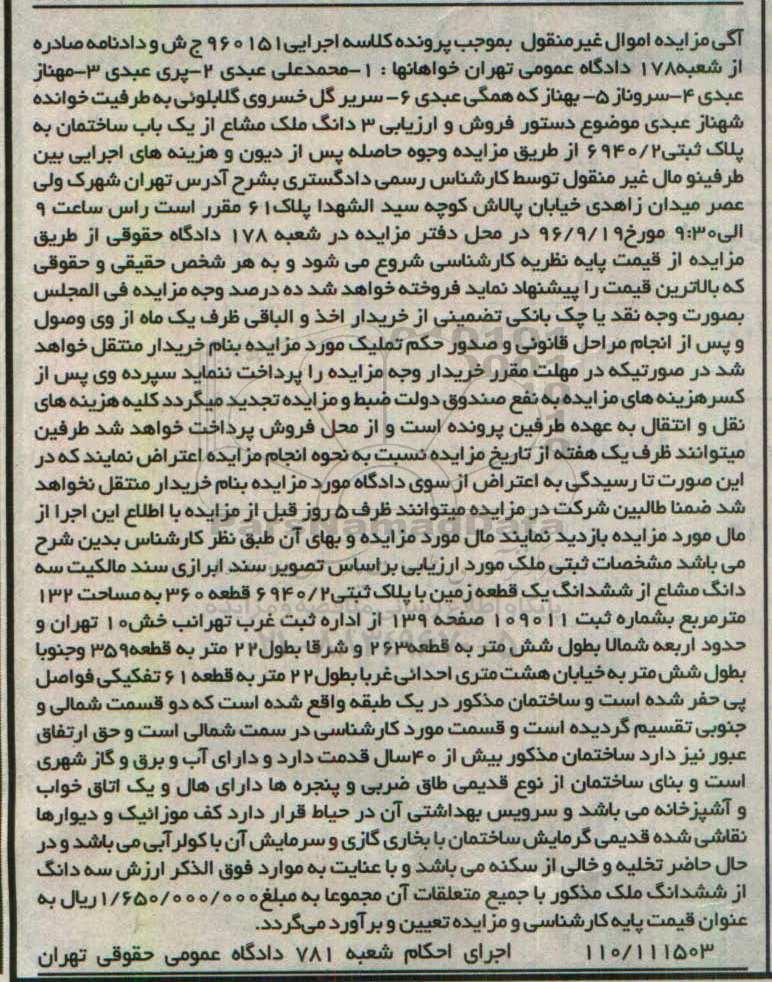 آگهی مزایده اموال غیرمنقول بموجب پرونده کلاسه اجرایی ۹۶۰۱۵۱ ج ش و دادنامه صادره
از شعبه ۱۷۸ دادگاه عمومی تهران خواهانها : ۱-محمدعلی عبدی ۲-پری عبدی ۳-مهناز
عبدی ۴-سروناز ۵- بهناز که همگی عبدی ۶- سریر گل خسروی گللابلوئی به طرفیت خوانده
شهناز عبدی موضوع دستور فروش و ارزیابی ۳ دانگ ملک مشاع از یک باب ساختمان به
پلاک ثبتی ۶۹۴۰/۲ از طریق مزایده وجوه حاصله پس از دیون و هزینه های اجرایی بین
طرفینو مال غیر منقول توسط کارشناس رسمی دادگستری بشرح آدرس تهران شهرک ولی
عصر میدان زاهدی خیابان پالاش کوچه سید الشهدا پلاک ۶۱ مقرر است راس ساعت ۹
الی ۹:۳۰ مورخ ۹۶/۹/۱۹ در محل دفتر مزایده در شعبه ۱۷۸ دادگاه حقوقی از طریق
مزایده از قیمت پایه نظریه کارشناسی شروع می شود و به هر شخص حقیقی و حقوقی
که بالاترین قیمت را پیشنهاد نماید فروخته خواهد شد ده درصد وجه مزایده فی المجلس
بصورت وجه نقد یا چک بانکی تضمینی از خریدار اخذ و الباقی ظرف یک ماه از وی وصول
و پس از انجام مراحل قانونی و صدور حکم تملیک مورد مزایده بنام خریدار منتقل خواهد
شد در صورتیکه در مهلت مقرر خریدار وجه مزایده را پرداخت ننماید سپرده وی پس از
کسر هزینه های مزایده به نفع صندوق دولت ضبط و مزایده تجدید میگردد کلیه هزینه های
نقل و انتقال به عهده طرفین پرونده است و از محل فروش پرداخت خواهد شد طرفین
میتوانند ظرف یک هفته از تاریخ مزایده نسبت به نحوه انجام مزایده اعتراض نمایند که در
این صورت تا رسیدگی به اعتراض از سوی دادگاه مورد مزایده بنام خریدار منتقل نخواهد
شد ضمنا طالبین شرکت در مزایده میتوانند ظرف ۵ روز قبل از مزایده با اطلاع این اجرا از
مال مورد مزایده بازدید نمایند مال مورد مزایده و بهای آن طبق نظر کارشناس بدین شرح
می باشد مشخصات ثبتی ملک مورد ارزیابی براساس تصویر سند ابرازی سند مالکیت سه
دانگ مشاع از ششدانگ یک قطعه زمین با پلاک ثبتی ۶۹۴۰/۲ قطعه ۳۶۰ به مساحت ۱۳۲
مترمربع بشماره ثبت ۱۰۹۰۱۱ صفحه ۱۳۹ از اداره ثبت غرب تهرانب خش ۱۰ تهران و
حدود اربعه شمالا بطول شش متر به قطعه ۲۶۳ و شرقا بطول ۲۲ متر به قطعه ۳۵۹ وجنوبا
بطول شش متر به خیابان هشت متری احداثی غربا بطول ۲۲ متر به قطعه ۶۱ تفکیکی فواصل
پی حفر شده است و ساختمان مذکور در یک طبقه واقع شده است که دو قسمت شمالی و
جنوبی تقسیم گردیده است و قسمت مورد کارشناسی در سمت شمالی است و حق ارتفاق
عبور نیز دارد ساختمان مذکور بیش از ۴۰ سال قدمت دارد و دارای آب و برق و گاز شهری
است و بنای ساختمان از نوع قدیمی طاق ضربی و پنجره ها دارای هال و یک اتاق خواب
و آشپزخانه می باشد و سرویس بهداشتی آن در حیاط قرار دارد کف موزائیک و دیوارها
نقاشی شده قدیمی گرمایش ساختمان با بخاری گازی و سرمایش آن با کولرآبی می باشد و در
حال حاضر تخلیه و خالی از سکنه می باشد و با عنایت به موارد فوق الذکر ارزش سه دانگ
از ششدانگ ملک مذکور با جمیع متعلقات آن مجموعا به مبلغ ۱/۶۵۰/۰۰۰/۰۰۰ ریال به
عنوان قیمت پایه کارشناسی و مزایده تعیین و برآورد می‌گردد.
۱۱۰/۱۱۱۵۰۳ اجرای احکام شعبه ۷۸۱ دادگاه عمومی حقوقی تهران
ParsNamadData